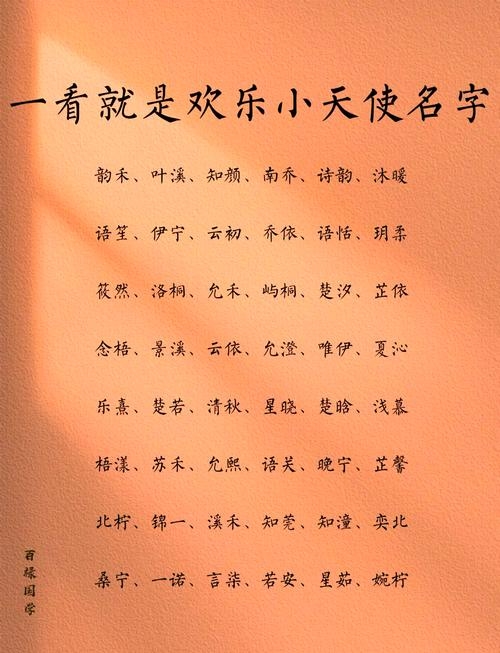 一看就是欢乐小天使名字
韵禾、叶溪、知颜、南乔、诗韵、沐暖
语笙、伊宁、云初、乔依、语恬、玥柔
筱然、洛桐、允禾、屿桐、楚汐、芷依
念梧、景溪、云依、允澄、唯伊、夏沁
乐熹、楚若、清秋、星晓、楚晗、浅慕
梧漾、苏禾、允熙、语关、晚宁、芷馨
北柠、锦一、溪禾、知莞、知潼、奕北
桑宁、一诺、言柒、若安、星茹、婉柠
百禄国学